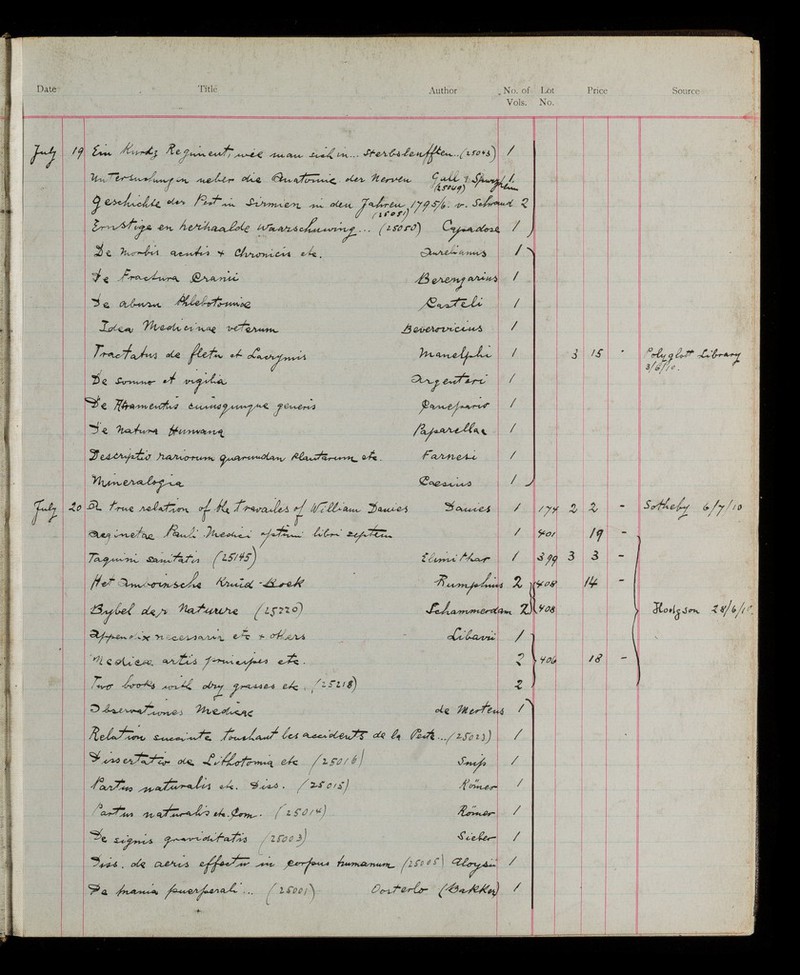 Date Title Author No. of Vols. Lot No. Price Source
July 19 Ein Kurtz Regiment, wie man sich in... Sterbsleufften.. (25043) 1
Untersuchungen ueber die Anatomie der Nerven (25049) Gall & Spurzheim 1
Geschichte der Pest in Sirmien in den Jahren 1795/6. (25051) v. Schraud 2
Ernstige en herhaalde Waarschuwing... (25050) Capadose 1
De Morbis acutis & Chronicis etc. Aurelianus 1
De Fractura Cranii Berengarius 1
De abusu Phlebotomiae Castelli 1
Idea Medicinae veterum Beverovicius 1
Tractatus de fletu et Lacrymis Manelphi 1 3 15 " Polyglott Library 3/6/10.
De Somno et vigilia Argenteri 1
De Atramentis cuiusqunque generis Caneparis 1
De Natura Humana Paparella 1
Descriptio rariorum quarumdam Plantarum etc. Farnesi 1
Mineralogia Caesius 1
July 20 A true relation of the travailes of William Davies Davies 1 174 2 2 - Sotheby 6/7/10
Aeginetae Pauli Medici optimi libri septem 1 401 19 -
Taquini sanitatis (25145) Elimithar 1 399 3 3 -
Het Amboinsche Kruid-Boek Rumphius 2 408 14 -
Bybel der Nature (25220) Schammerdam 2 408 Hodgson 28/6/10
Appendix necessaria etc & others Libavii 1
Medicae artis principes etc. 2 406 18 -
Two books with dry grasses etc. (25218) 2
Observationes Medicae de Mertens 1
Relation succincte touchant les accidents de la Peste... (25023) 1
Dissertatio de Lithotomia etc (25016) Snip 1
Partus naturalis etc. Diss. (25015) Römer 1
Partus naturalis etc. Com. (25014) Römer 1
De signis graviditatis (25003) Sieber 1
Diss. de aeris effectu in corpus humanum (25005) Aloysii 1
De mania puerperali... (25001) Oosterlo (Bakker) 1